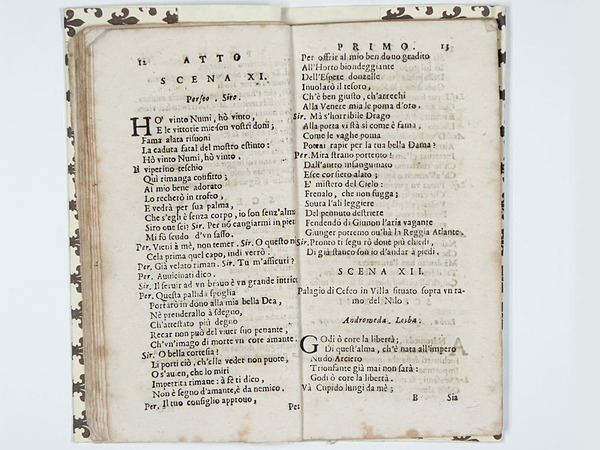 12 ATTO
SCENA XI.
Perseo. Siro.
HO' vinto Numi, hò vinto,
E le vittorie mie son vostri doni;
Fama alata risuoni
La caduta fatal del mostro estinto:
Hò vinto Numi, hò vinto.
Il viperino teschio
Qui rimanga confitto;
Al mio bene adorato
Lo recherò in trofeo,
E vedrà per sua palma,
Che s'egli è senza corpo, io son senz'alma
Siro oue sei? Sir. Per nō cangiarmi in piet
Mi fò scudo d'vn sasso.
Per. Vieni à mè, non temer. Sir. O questo nō
Cela prima quel capo, indi verrò.
Per. Già velato riman. Sir. Tu m'assicuri?
Per. Auuicinati dico.
Sir. Il seruir ad vn brauo è vn grande intrico
Per. Questa pallida spoglia
Portarò in dono alla mia bella Dea,
Nè prenderallo à sdegno,
Ch'attestato più degno
Recar non può del viuer suo penante,
Ch'vn'imago di morte vn core amante.
Sir. O bella cortesia!
Li porti ciò, ch'ella veder non puote,
O s'auuien, che lo miri
Impetrita rimane: à fè ti dico,
Non è segno d'amante, è da nemico.
Per. Il tuo consiglio approuo,
Per
PRIMO. 13
Per offrir al mio ben dono gradito
All'Horto biondeggiante
Dell'Espere donzelle
Inuolarò il tesoro,
Ch'è ben giusto, ch'arrechi
Alla Venere mia le poma d'oro.
Sir. Mà s'horribile Drago
Alla porta vi stà sì come è fama,
Come le vaghe poma
Potrai rapir per la tua bella Dama?
Per. Mira strano portento!
Dall'antro insanguinato
Esce corsiero alato;
E' mistero del Cielo:
Frenalo, che non fugga;
Soura l'ali leggiere
Del pennuto destriere
Fendendo di Giunon l'aria vagante
Giunger potremo où'hà la Reggia Atlante.
Sir. Pronto ti segurò doue più chiedi,
Di già stanco son io d'andar à piedi.
SCENA XII.
Palagio di Cefeo in Villa situato sopra vn ra-
mo del Nilo.
Andromeda. Lesba.
GOdi ò core la libertà;
Di quest'alma, ch'è nata all'impero
Nudo Arciero
Trionfante già mai non sarà:
Godi ò core la libertà.
Và Cupido lungi da mè;
B Sia